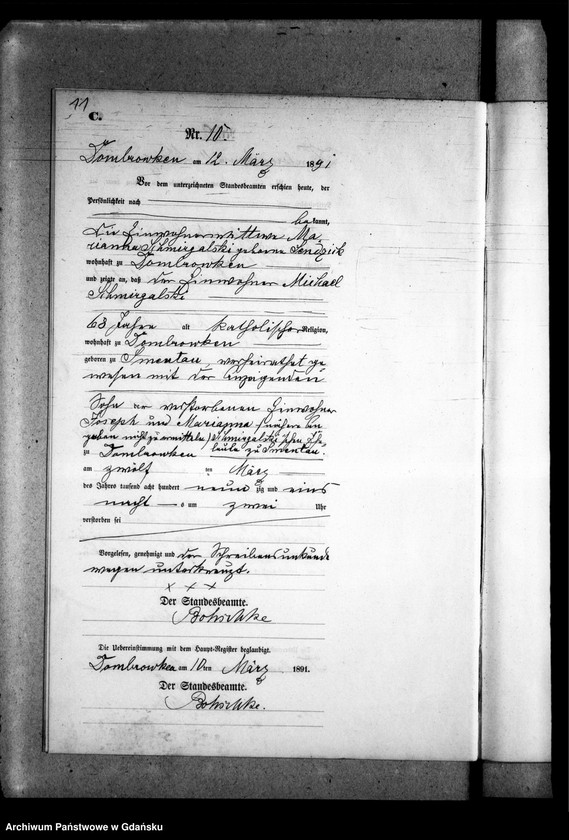 11
C.
Nr. 10
Dombrowken am 12. März 1891
Vor dem unterzeichneten Standesbeamten erschien heute, der
Persönlichkeit nach
bekannt,
die Einwohnerwittwe Ma
rianna Schmergalski geborne
wohnhaft zu Dombrowken
und zeigte an, daß der Einwohner Michael
Schmergalski
63 Jahre alt katholischer Religion,
wohnhaft zu Dombrowken
geboren zu Smentau, verheirathet ge
wesen mit der Anzeigenden
Sohn der verstorbenen Einwohner
Joseph und Marianna (nähere An
gaben nicht zu ermitteln) Schmergalski'schen Ehe
leute zu Smentau.
zu Dombrowken
am zwölf ten März
des Jahres tausend acht hundert neun zig und eins
nacht s um zwei Uhr
verstorben sei
Vorgelesen, genehmigt und der Schreibensunkunde
wegen unterkreuzt.
x x x
Der Standesbeamte.
Bohschke
Die Uebereinstimmung mit dem Haupt-Register beglaubigt.
Dombrowken am 10ten März 1891.
Der Standesbeamte.
Bohschke.
Archiwum Państwowe w Gdańsku